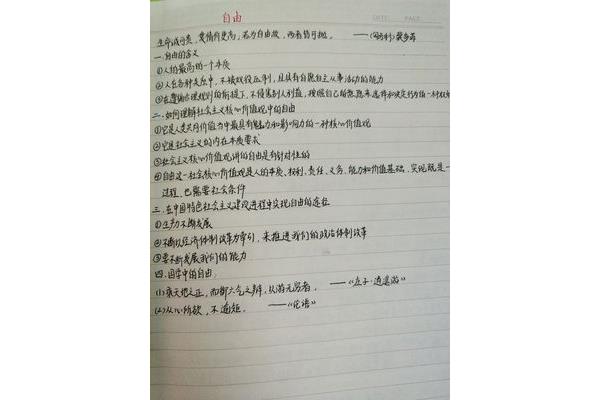 自由
DATE. PAGE.
生命诚可贵，爱情价更高，若为自由故，两者皆可抛。 ——《匈牙利》裴多菲
一.自由的含义
①人的最高的一个本质
②人在各种关系中，不被奴役压制，且具有自愿自主从事活动的能力
③在遵循合理规则的前提下，不侵害别人利益，按照自己的意愿来选择和决定行为的一种权利
二.如何理解社会主义核心价值观中的自由
①它是人类共同价值当中最具有魅力和影响力的一种核心价值观
②它是社会主义的内在本质要求
③社会主义核心价值观讲的自由是有针对性的
④自由这一社会核心价值观是人的本质、权利、责任、义务、能力和价值基础，实现既是一
过程，也需要社会条件
三.在中国特色社会主义建设进程中实现自由的途径
①生产力不断发展
②不断以经济体制改革为牵引，来推进我们的政治体制改革
③要不断发展我们的能力
四.国学中的自由：
(1)乘天地之正，而御六气之辩，以游无穷者。 ——《庄子·逍遥游》
(2)从心所欲，不逾矩。 ——《论语》